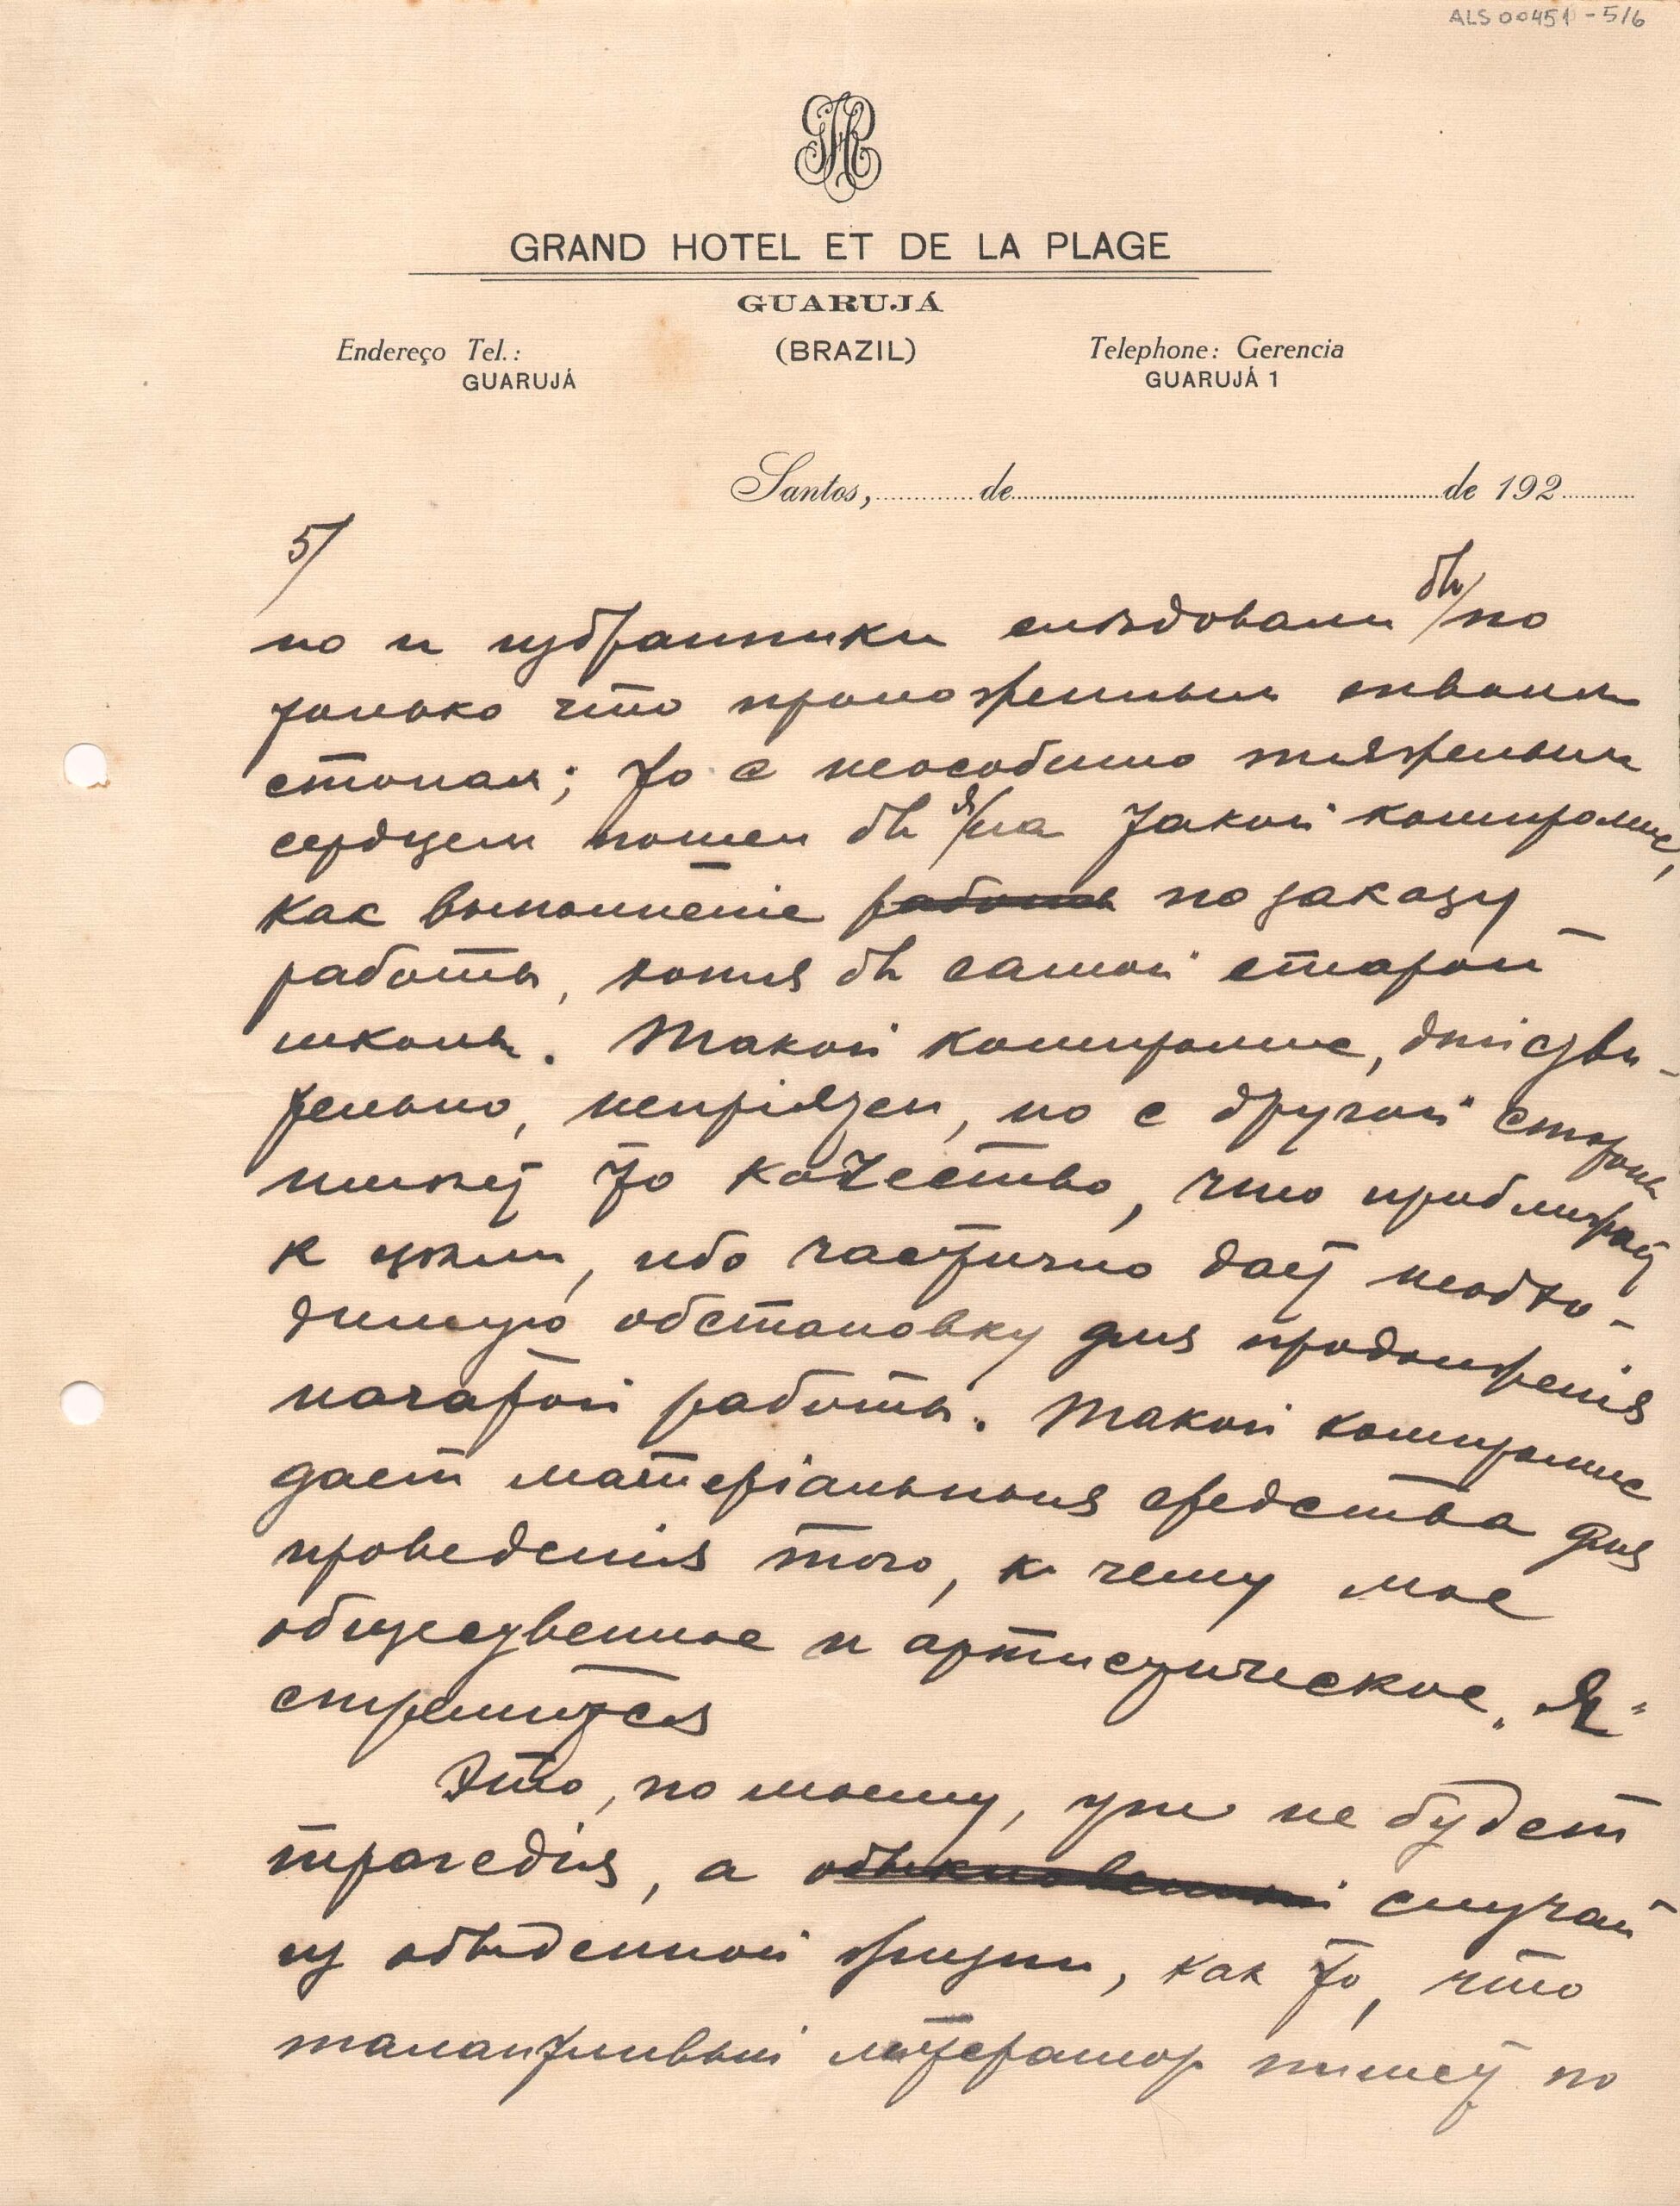 ALS 00451 - 5/6
GRAND HOTEL ET DE LA PLAGE
GUARUJÁ
Endereço Tel.: (BRAZIL) Telephone: Gerencia
GUARUJÁ GUARUJÁ 1
Santos, de de 192
5/
но и избранники слѣдовали бы по
только что проложенным
стопам; то с неособенно тяжелым
сердцем пошел бы я на такой компромис,
как выполненіе работы по заказу
работы, хотя бы самой старой
школы. Такой компромис, дѣйстви-
тельно, непріятен, но с другой стороны
имѣет то качество, что приближает
к цѣли, ибо частично дает необхо-
димую обстановку для продолженія
начатой работы. Такой компромис
дает матеріальныя средства для
проведенія того, к чему мое
общественное и артистическое „Я"
стремится
Это, по моему, уже не будет
трагедія, а обыкновенный случай
из обыденной жизни, как то, что
талантливый литератор пишет по